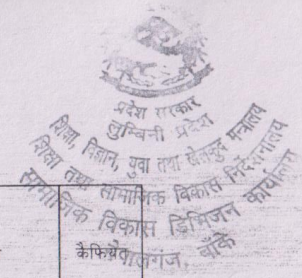 प्रदेश सरकार
लुम्बिनी प्रदेश
शिक्षा, विज्ञान, युवा तथा खेलकुद मन्त्रालय
शिक्षा तथा सामाजिक विकास निर्देशनालय
सामाजिक विकास डिभिजन कार्यालय
बाँके